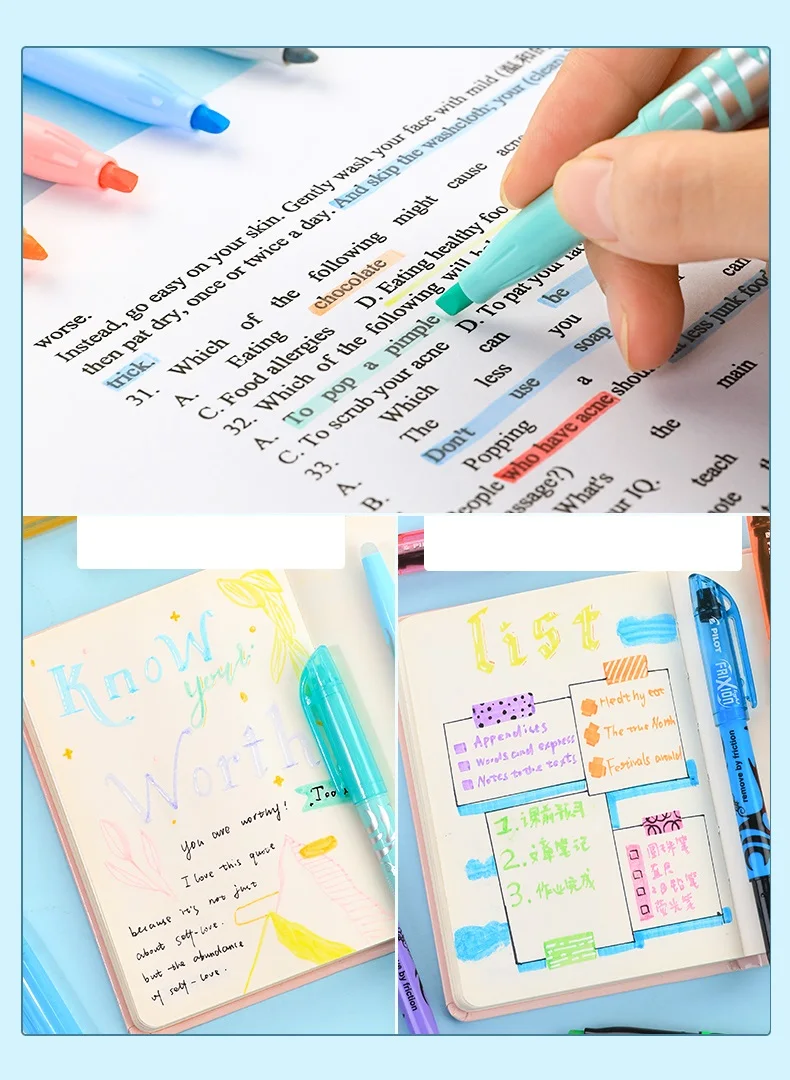 worse.
Instead, go easy on your skin. Gently wash your face with mild
then pat dry, once or twice a day. And skip the washcloth; your (clean)
trick.
31. Which of the following might cause acne
A. Eating chocolate D. Eating healthy foo
C. Food allergies
32. Which of the following will
A. To pop a pimple D. To pat your
C. To scrub your acne
33. Which can you be can
A. The less soap
Don't use a shou less junk foo
B. Popping
eople who have acne the main
ssage?)
What's teach
ur IQ. note
Know
your
Worth
Too
You are worthy!
I love this quote
because it's not just
about self-love.
but the abundance
of self-love.
list
Appendices
Words and express
Notes to the texts
Healthy eat
The true North
Festivals around
1. 课前预习
2. 文章笔记
3. 作业完成
圆珠笔
直尺
2B铅笔
荧光笔
PILOT
FRIXION
remove by friction
PILOT
ve by friction